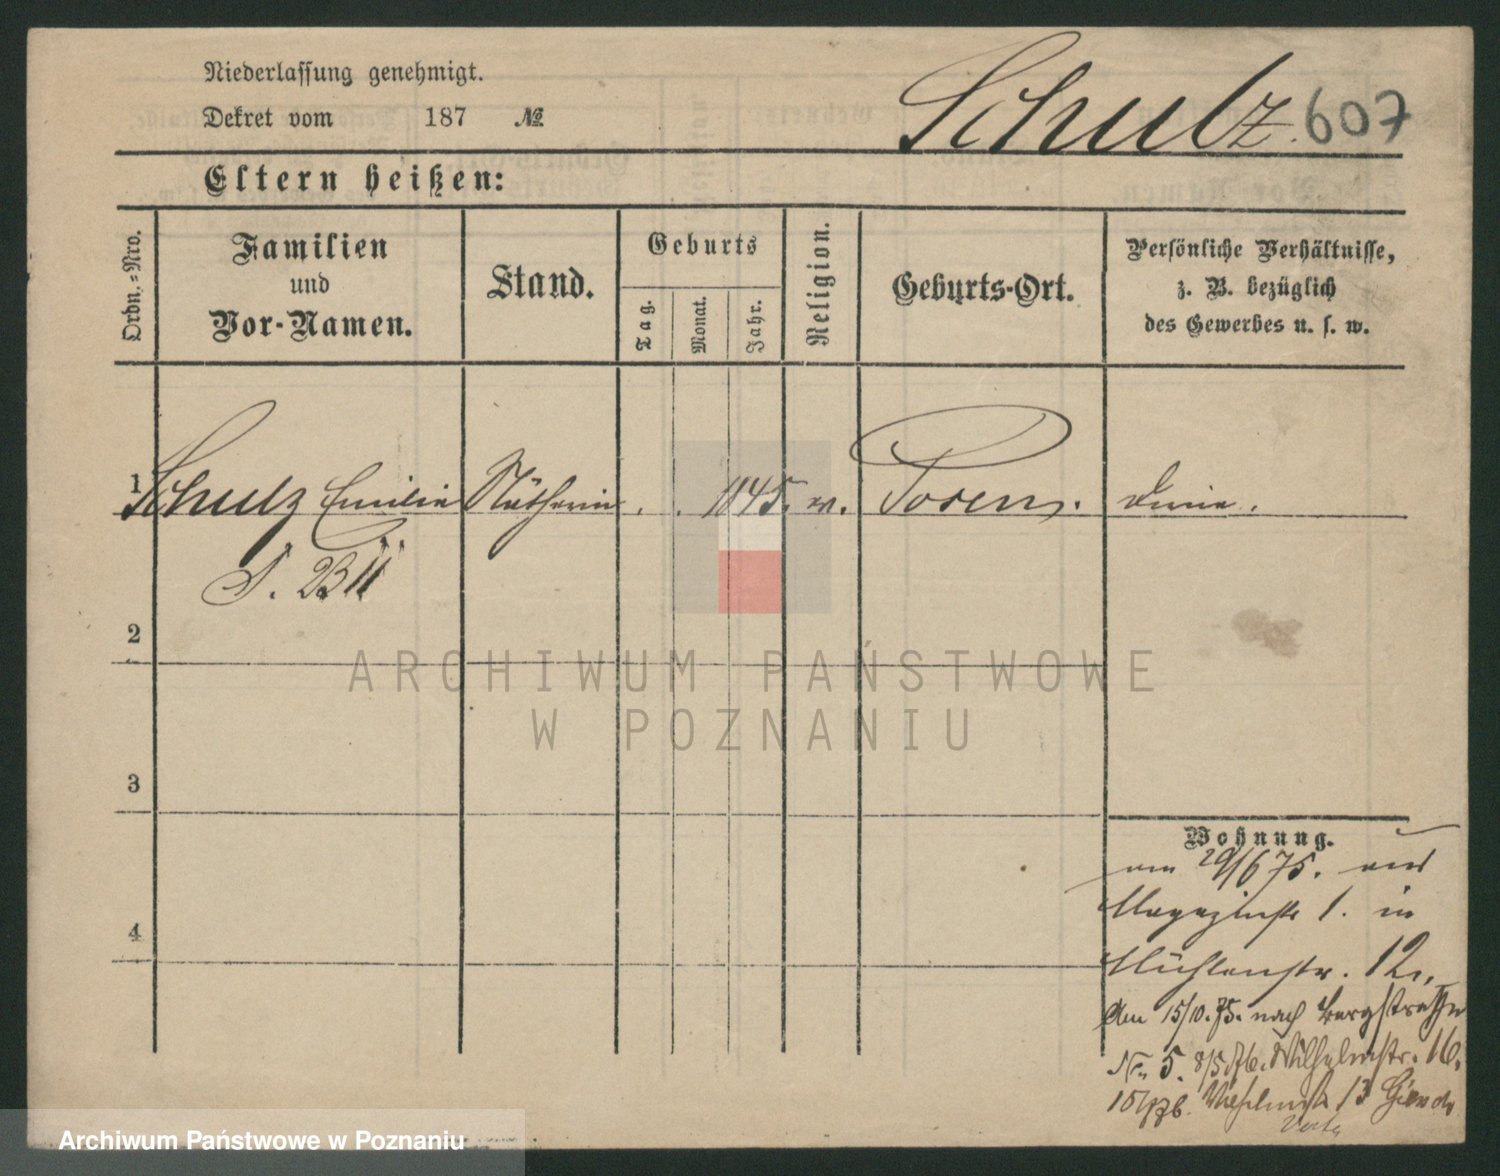 Niederlassung genehmigt.
Dekret vom 187 №
Schulz. 607
Eltern heißen:
Ordn.-Nro.
Familien
und
Vor-Namen.
Stand.
Geburts
Tag.
Monat.
Jahr.
Religion.
Geburts-Ort.
Persönliche Verhältnisse,
z. B. bezüglich
des Gewerbes u. s. w.
1 Schulz Emilie Nätherin . . 1845. Posen.
S. B II
2
3
4
Wohnung.
am 29/6 75. aus
Magazinstr 1. in
Mühlenstr. 12.
Am 15/10. 75. nach Bergstraße
No 5. 8/5. 76. Wilhelmstr. 16.
Wilhelmstr 13
ARCHIWUM PAŃSTWOWE
W POZNANIU
Archiwum Państwowe w Poznaniu